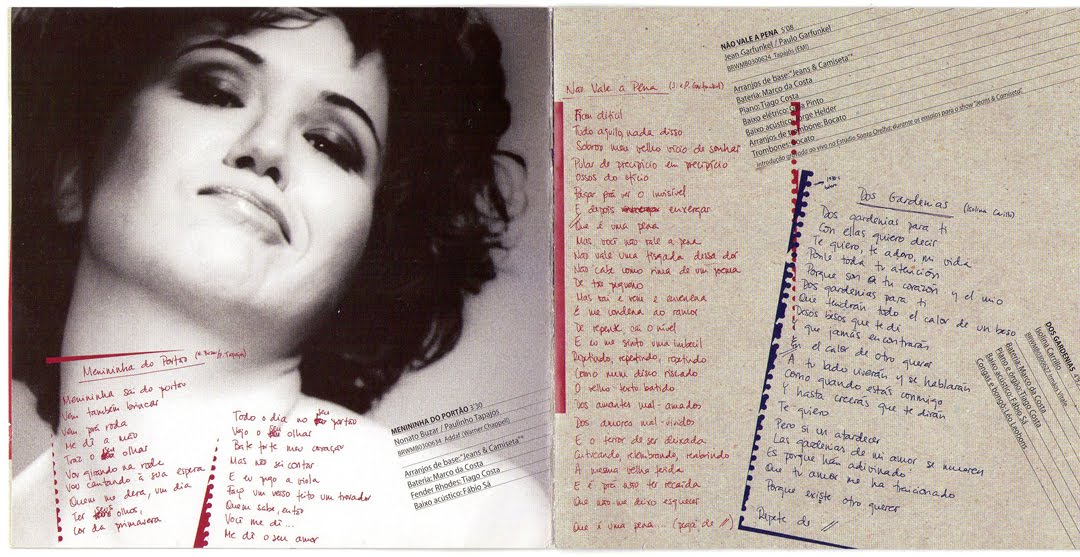 Menininha do Portão (N. Buzar/P. Tapajós)
Menininha sai do portão
Vem também brincar
Vem prá roda
Me dê a mão
Traz o seu olhar
Vou girando na roda
Vou cantando à sua espera
Quem me dera, um dia
Ter seus olhos,
Cor da primavera
Todo o dia no seu portão
Vejo o seu olhar
Bate forte meu coração
Mas não sei contar
E eu pego a viola
Faço um verso feito um trovador
Quem sabe, então
Você me dê...
Me dê o seu amor
MENININHA DO PORTÃO 3'30
Nonato Buzar / Paulinho Tapajos
BRWMB0300634 Addaf (Warner Chappell)
Arranjos de base: "Jeans & Camiseta"*
Bateria: Marco da Costa
Fender Rhodes: Tiago Costa
Baixo acústico: Fábio Sá
NÃO VALE A PENA 5'08
Jean Garfunkel / Paulo Garfunkel
BRWMB0300624 Tapajós (EMI)
Arranjos de base: "Jeans & Camiseta"*
Bateria: Marco da Costa
Piano: Tiago Costa
Baixo elétrico: Pinto
Baixo acústico: Jorge Helder
Arranjos de trombone: Bocato
Trombones: Bocato
Introdução gravada ao vivo no Estúdio Santa Orelha, durante os ensaios para o show "Jeans & Camiseta".
Não Vale a Pena (J. e P. Garfunkel)
Ficou difícil
Tudo aquilo, nada disso
Sobrou meu velho vício de sonhar
Pular de precipício em precipício
Ossos do ofício
Pagar prá ver o invisível
E depois enxergar
Que é uma pena
Mas você não vale a pena
Não vale uma fisgada dessa dor
Não cabe como rima de um poema
De tão pequeno
Mas vai e vem e envenena
E me condena ao rancor
De repente, cai o nível
E eu me sinto uma imbecil
Repetindo, repetindo, repetindo
Como num disco riscado
O velho texto batido
Dos amantes mal-amados
Dos amores mal-vividos
E o terror de ser deixada
Cutucando, relembrando, reabrindo
A mesma velha ferida
E é prá não ter recaída
Que não me deixo esquecer
Que é uma pena... (pega de //)
Dos Gardenias (Isolina Carillo)
Dos gardenias para ti
Con ellas quiero decir
Te quiero, te adoro, mi vida
Ponle toda tu atención
Porque son tu corazón y el mio
Dos gardenias para ti
Que tendrán todo el calor de un beso
Desos besos que te di
Y que jamás encontrarás
En el calor de otro querer
A tu lado vivirán y se hablarán
Como quando estás conmigo
Y hasta creerás que te dirán
Te quiero
Pero si un atardecer
Las gardenias de mi amor se mueren
Es porque han adivinado
Que tu amor me ha traicionado
Porque existe otro querer
Repete de //
DOS GARDENIAS
Isolina Carrillo
Bateria: Marco da Costa
Piano e órgão: Tiago Costa
Baixo acústico: Fábio Sá
Congas e bongô: Léo Leobons